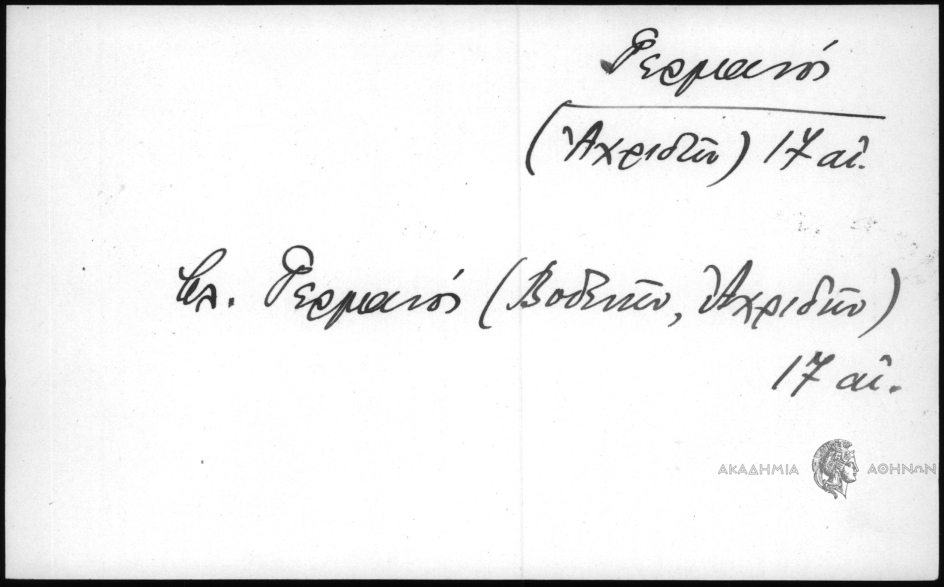 Γερμανός
(Ἀχριδῶν) 17 αἰ.
βλ. Γερμανός (Βοδενῶν, Ἀχριδῶν)
17 αἰ.
ΑΚΑΔΗΜΙΑ ΑΘΗΝΩΝ